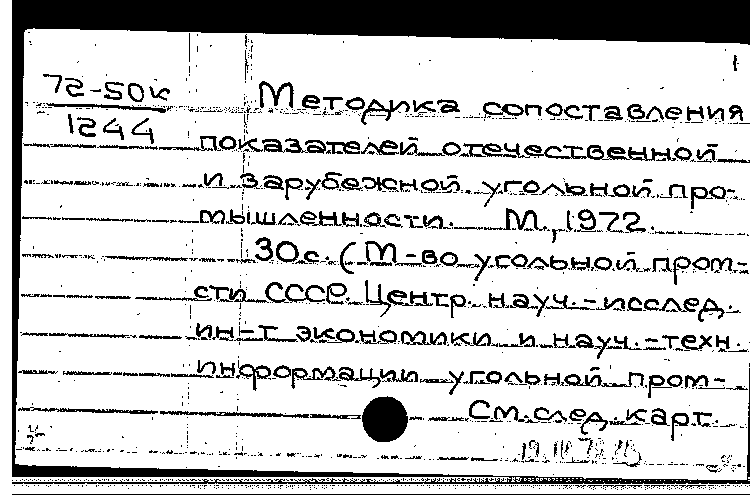 1
72-50к
1244
Методика сопоставления
показателей отечественной
и зарубежной угольной про-
мышленности. М., 1972.
30с. (М-во угольной пром-
сти СССР. Центр. науч.-исслед.
ин-т экономики и науч.-техн.
информации угольной пром-
См.след.карт.